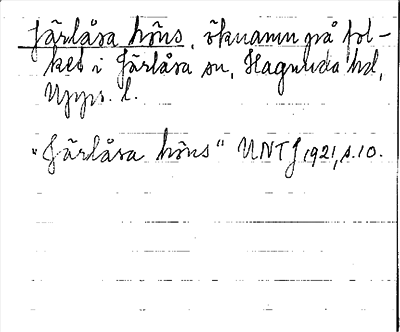 Järlåsa höns, öknamn på fol-
ket i Järlåsa sn, Hagunda hd,
Upps. l.
"Järlåsa höns" UNT J 1921, s. 10.